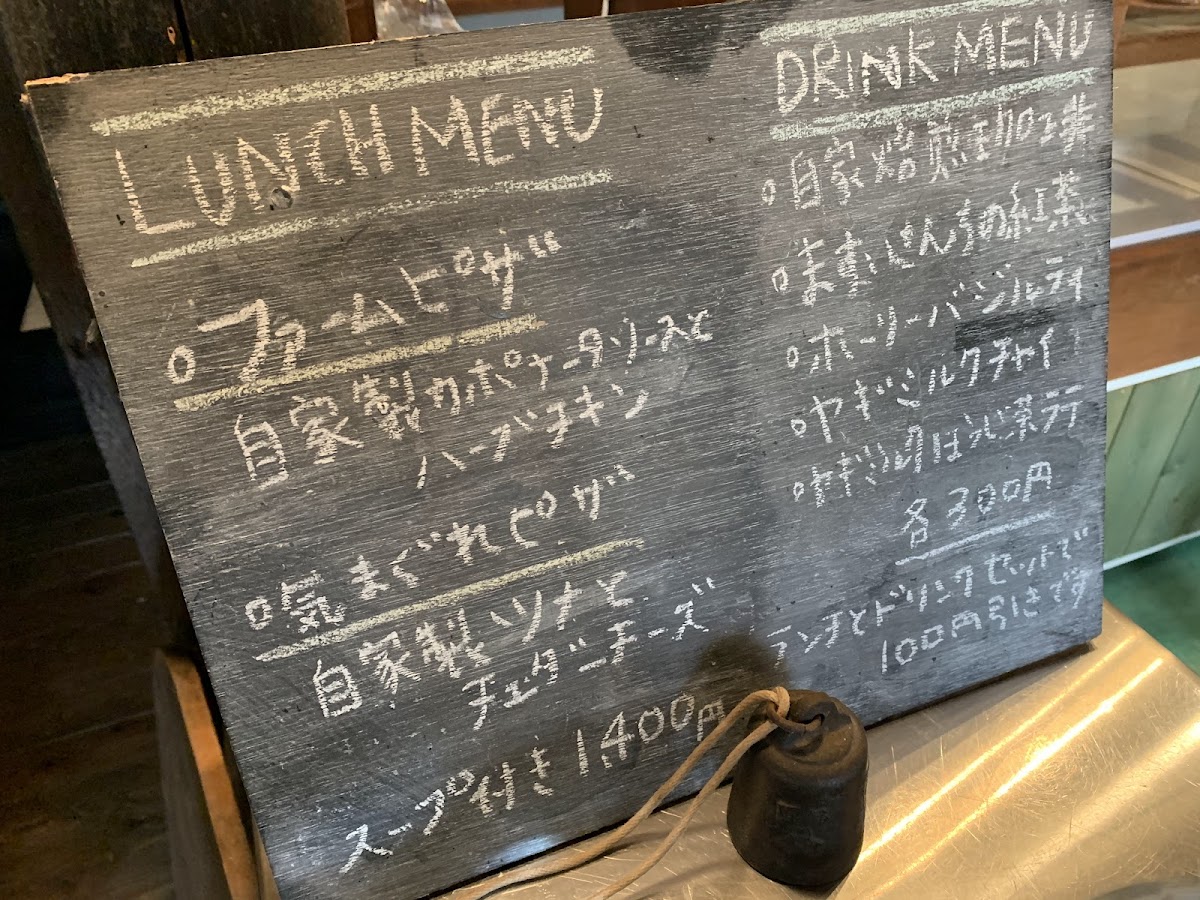 LUNCH MENU
○ファームピザ
自家製カポナータソースと
ハーブチキン
○気まぐれピザ
自家製ツナと
チェダーチーズ
スープ付き 1,400円
DRINK MENU
○自家焙煎珈琲
○ホーリーバジルティ
○ヤギミルクチャイ
○ヤギミルクほうじ茶ラテ
各300円
ランチとドリンクセットで
100円引きです